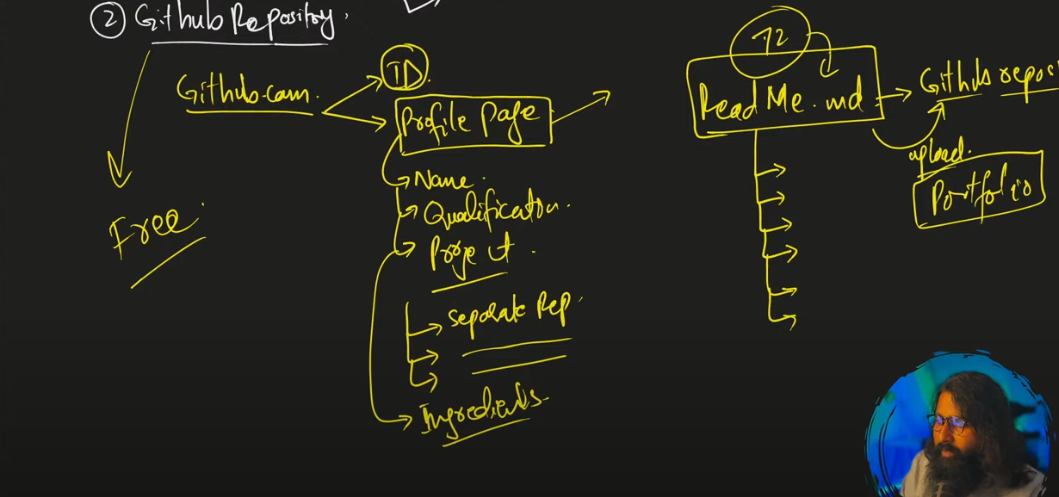 ② Github Repository.
Github.com.
ID.
Profile Page
Name.
Qualification.
Project.
Separate Rep.
Ingredients.
Free.
72
ReadMe.md
Github repos
upload.
Portfolio